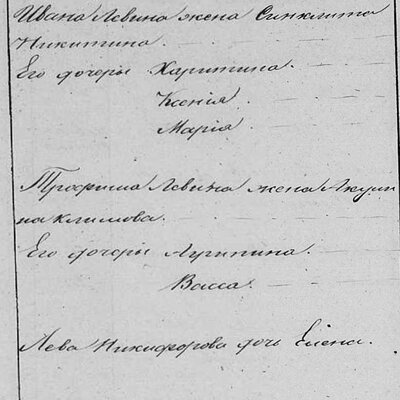 Ивана Левина жена Синклита
Никитина.
Его дочеры Харитина.
Ксенія.
Марія.
Трофима Левина жена Акули
на Климова.
Его дочеры Агрипина.
Васса.
Лева Никифорова дочь Елена.